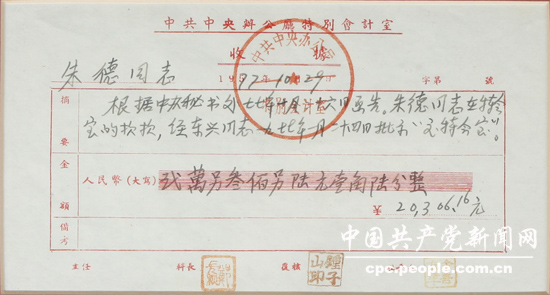 中共中央辦公廳特別會計室
收 據
中共中央办公厅
特別會計室
朱德同志 1977.10.29 字第 號
摘要
根据中办秘书处七七年十月二十六日函告。朱德同志在特会
室的款,经东兴同志一九七七年一月二十四日批示“交特会室”。
金額
人民幣(大寫) 弍萬另叁佰另陆元壹角陆分整
¥ 20,306.16元
備考
主任 科長 復核
鍾子山印
中国共产党新闻网
cpc.people.com.cn